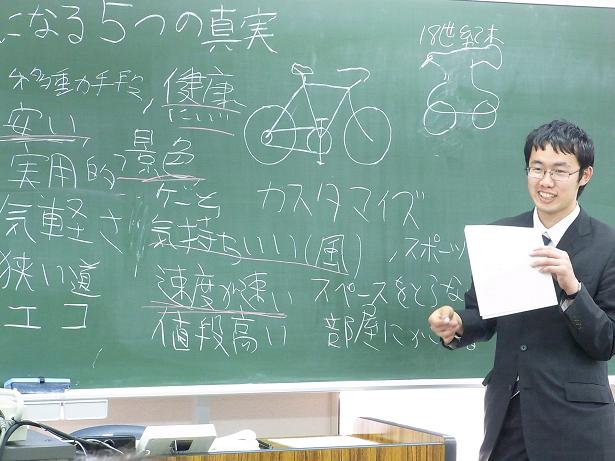 になる5つの真実
移動手段,健康
にいい
18世紀末
安い
実用的
景色
気軽さ
カスタマイズ
気持ちいい(風)
スポーツ
狭い道
速度が速い
スペースをとらな
エコ
値段高い
部屋に